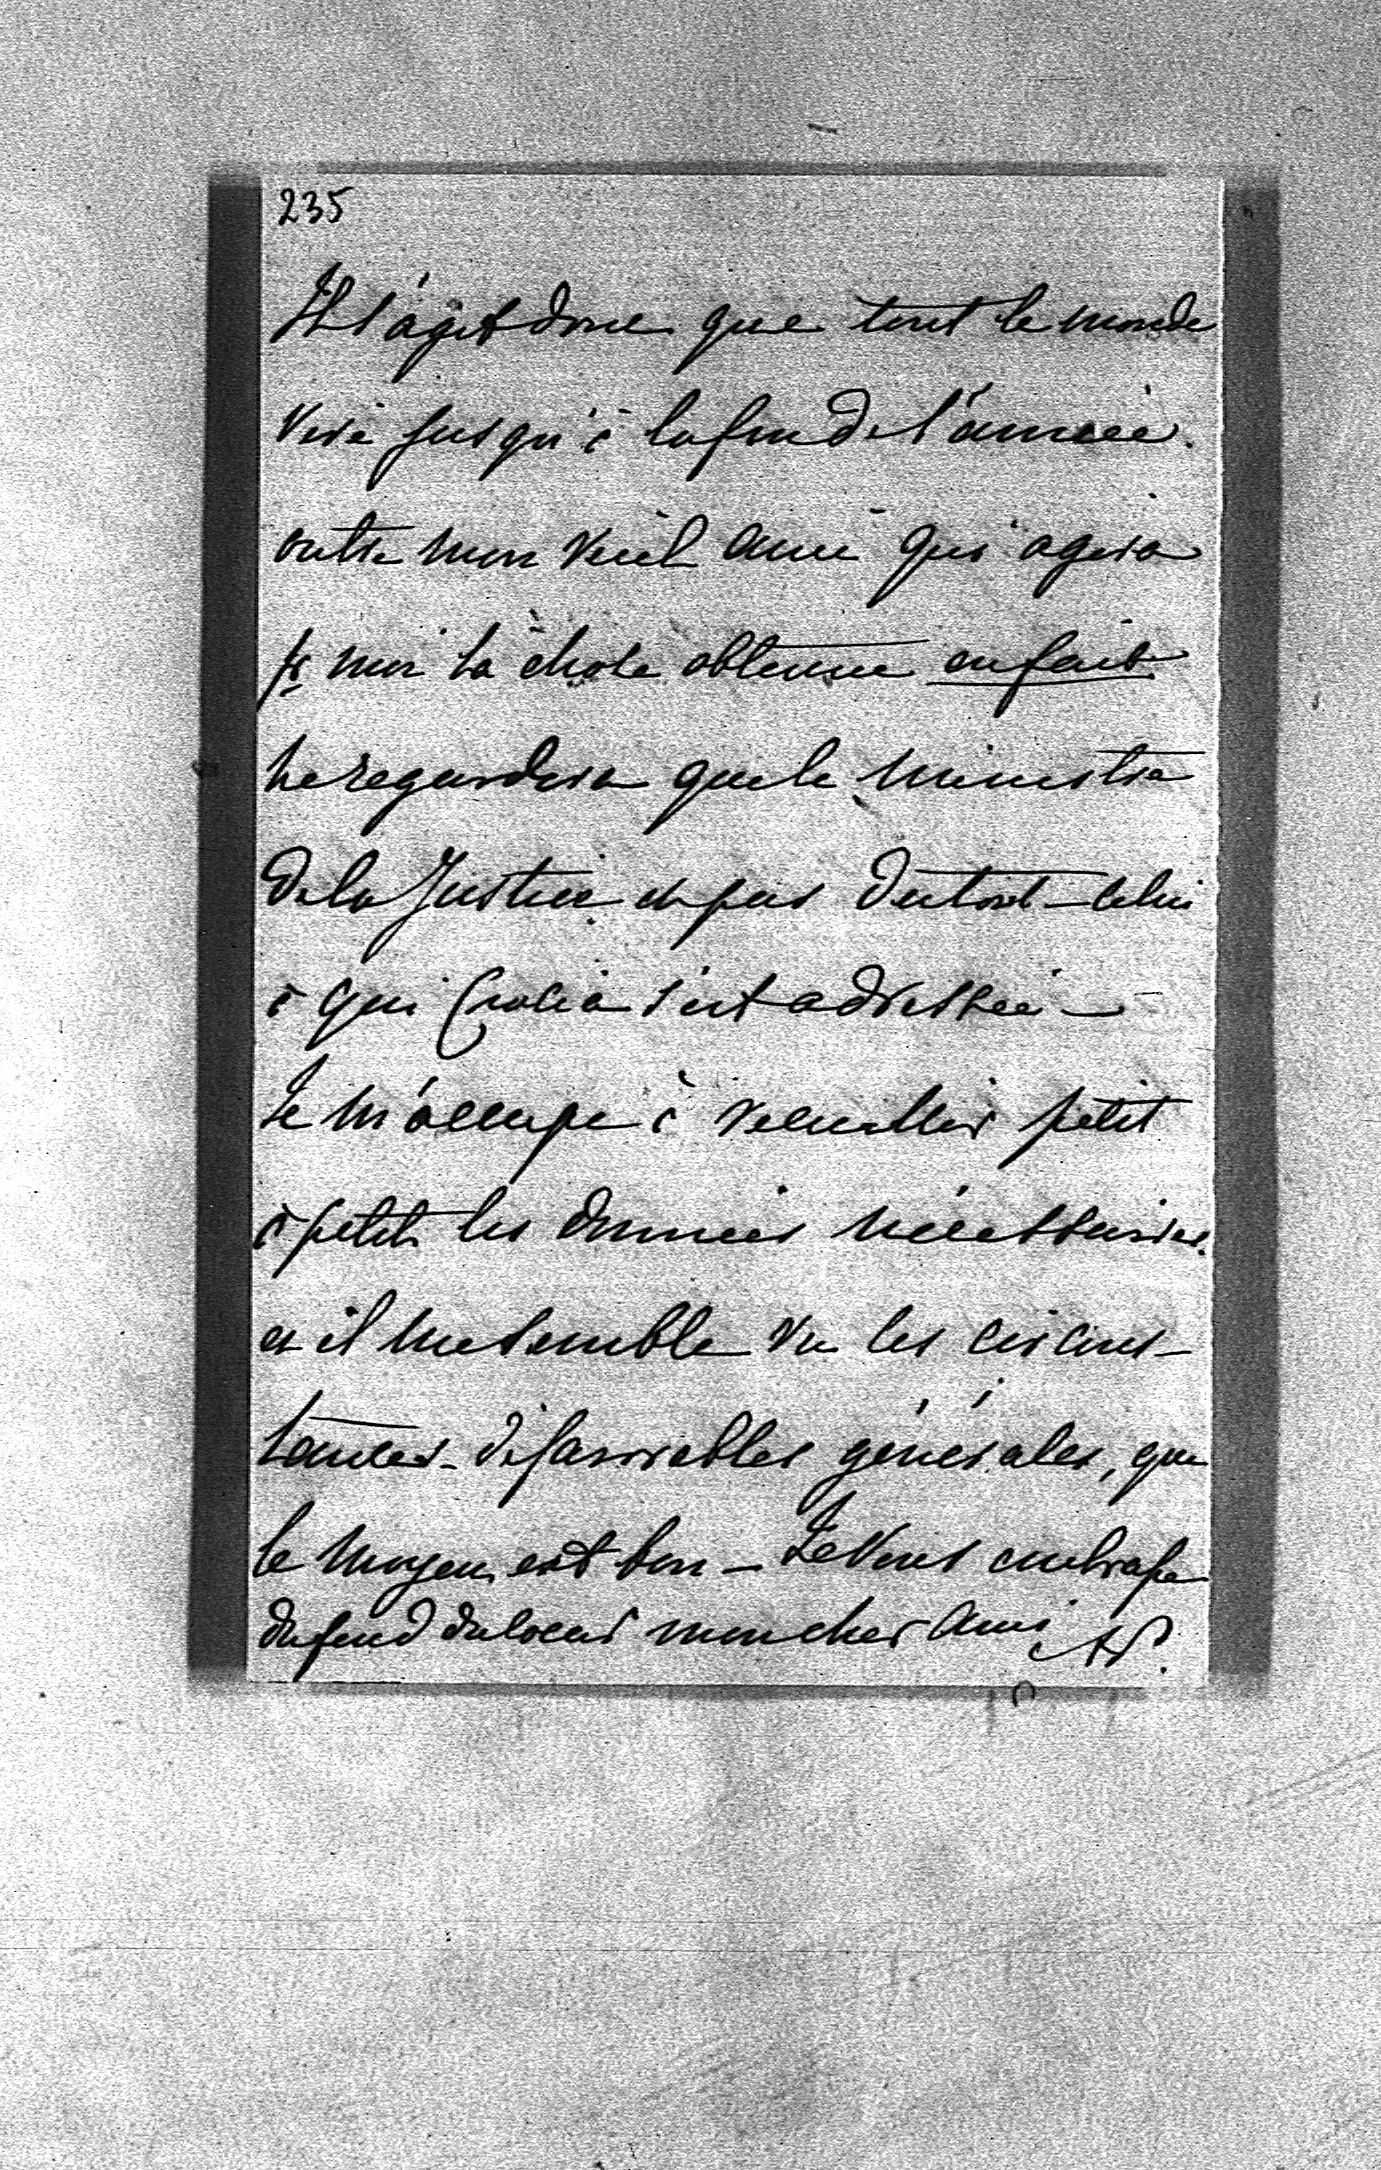 235
Il s'agit donc que tout le monde
vive jusqu'à la fin de l'année.
outre mon vieil ami qui agira
pr moi la chose obtenue en fait
ne regardera que le ministre
de la Justice et pas du tout celui
à qui s'est adressée —
Je m'occupe à recueillir petit
à petit les données nécessaires.
et il me semble vu les circons-
tances défavorables générales, que
le moyen est bon — Je vous embrasse
du fond du coeur mon cher ami